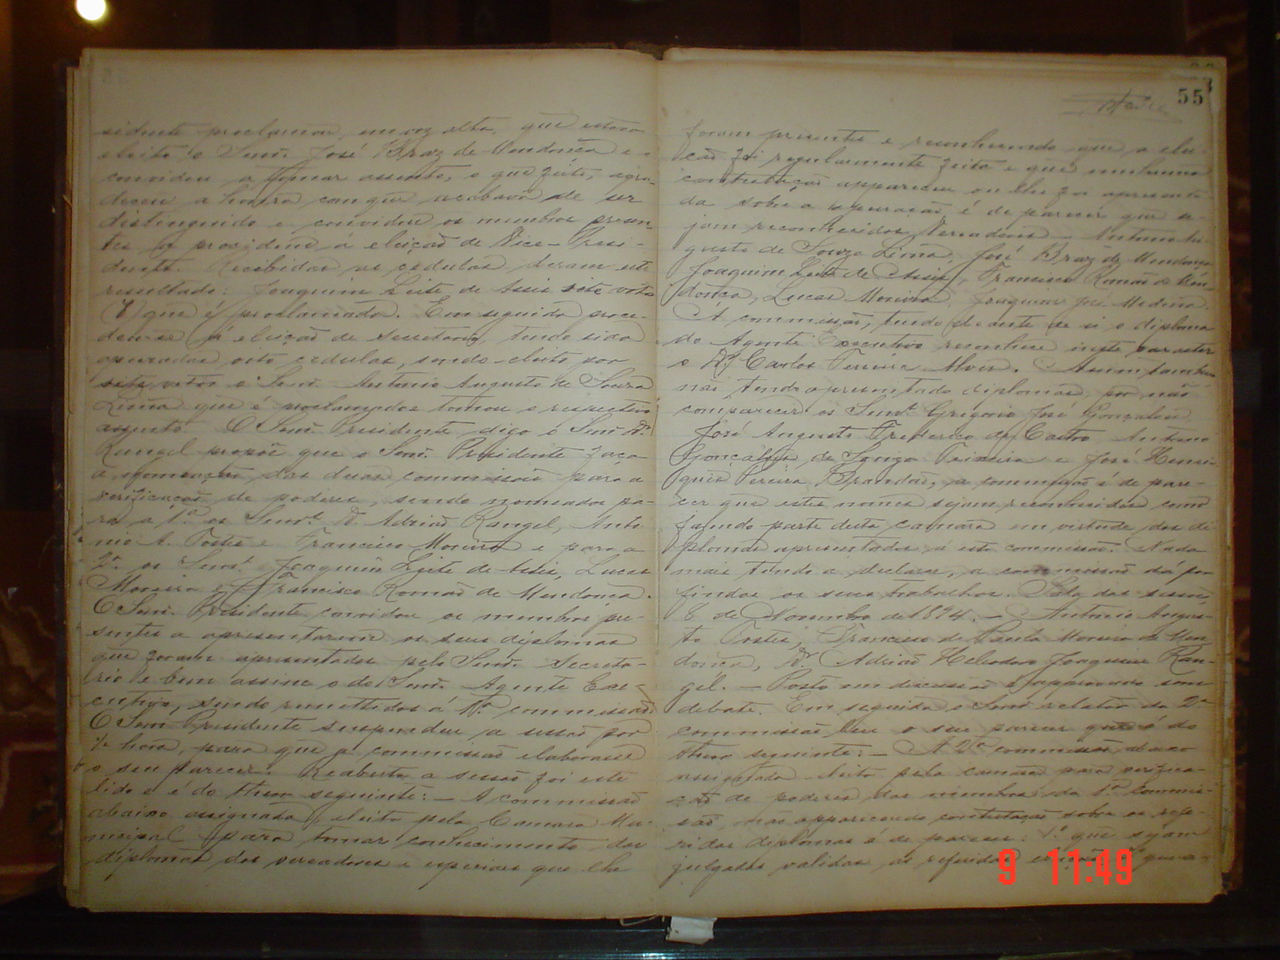 sidente proclamar, em voz alta, que estava
eleito o Senr. José Braz de Mendonça e o
convidou a tomar assento, o que feito, agra-
deceu a honra com que acabava de ser
distinguido e convidou os membros presen-
tes a proceder a eleição de Vice-Presi-
dente. Recebidas as cedulas, deram este
resultado: Joaquim Leite de Assis sete votos
(7) que é proclamado. Em seguida proce-
deu-se á eleição de Secretario, tendo sido
apuradas oito cedulas, sendo eleito por
sete votos o Senr. Antonio Augusto de Souza
Lima que é proclamado e tomou o respectivo
assento. O Senr. Presidente, digo o Senr. Dr.
Rangel propõe que o Senr. Presidente faça
a nomeação das duas commissões para a
verificação de poderes, sendo nomeados pa-
ra a 1ª os Senrs. Dr. Adrião Rangel, Anto-
nio A. Tostes e Francisco Moreira e para a
2ª os Senrs. Joaquim Leite de Assis, Lucas
Moreira e Francisco Romão de Mendonça.
O Senr. Presidente convidou os membros pre-
sentes a apresentarem os seus diplomas
que foram apresentados pelo Senr. Secreta-
rio e bem assim o do Senr. Agente Exe-
cutivo, sendo remettidos á 1ª commissão.
O Senr. Presidente suspendeu a sessão por
½ hora, para que a commissão elaborasse
o seu parecer. Reaberta a sessão foi este
lido e é do theor seguinte: - A commissão
abaixo assignada, eleita pela Camara Mu-
nicipal para tomar conhecimento dos
diplomas dos vereadores e especiaes que lhe
55
foram presentes e reconhecendo que a elei-
ção foi regularmente feita e que nenhuma
contestação appareceu ou lhe foi apresenta-
da sobre a apuração, é de parecer que se-
jam reconhecidos vereadores Antonio Au-
gusto de Souza Lima, José Braz de Mendonça
Joaquim Leite de Assis, Francisco Romão de Men-
donça, Lucas Moreira, Joaquim José Medina.
A commissão, tendo deante de si o diploma
do Agente Executivo reconhece neste caracter
o Dr. Carlos Ferreira Alves. Assim tambem
não tendo apresentado diplomas, por não
comparecer os Senrs. Gregorio José Gonçalves
José Augusto Frederico de Castro Antonio
Gonçalves de Souza Teixeira e José Henri-
ques Pereira Brandão, a commissão é de pare-
cer que estes nomes sejam reconhecidos como
fazendo parte desta camara em virtude dos di-
plomas apresentados a esta commissão. Nada
mais tendo a declarar, a commissão dá por
findos os seus trabalhos. Sala das sessões
8 de Novembro de 1894. - Antonio Augus-
to Tostes, Francisco de Paula Moreira de Men-
donça, Dr. Adrião Heliodoro Joaquim Ran-
gel. - Posto em discussão é approvado sem
debate. Em seguida o Senr. relator da 2ª
commissão leu o seu parecer que é do
theor seguinte: - A 2ª commissão abaixo
assignada eleita pela camara para verifica-
ção de poderes dos membros da 1ª commis-
são, não apparecendo contestação sobre os refe-
ridos diplomas é de parecer: 1º que sejam
julgados validos os referidos
9 11:49